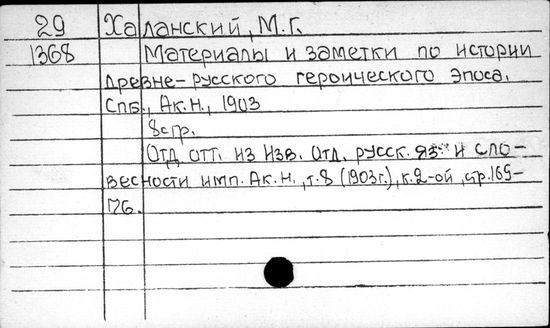 29 Халанский, М.Г.
1368 Материалы и заметки по истории
древне-русского героического эпоса.
Спб., Ак.Н., 1903
8стр.
Отд. отт. из Изв. Отд. русск. яз. и сло-
весности имп. Ак.Н., т.8 (1903г.), к.2-ой, стр.165-
76.